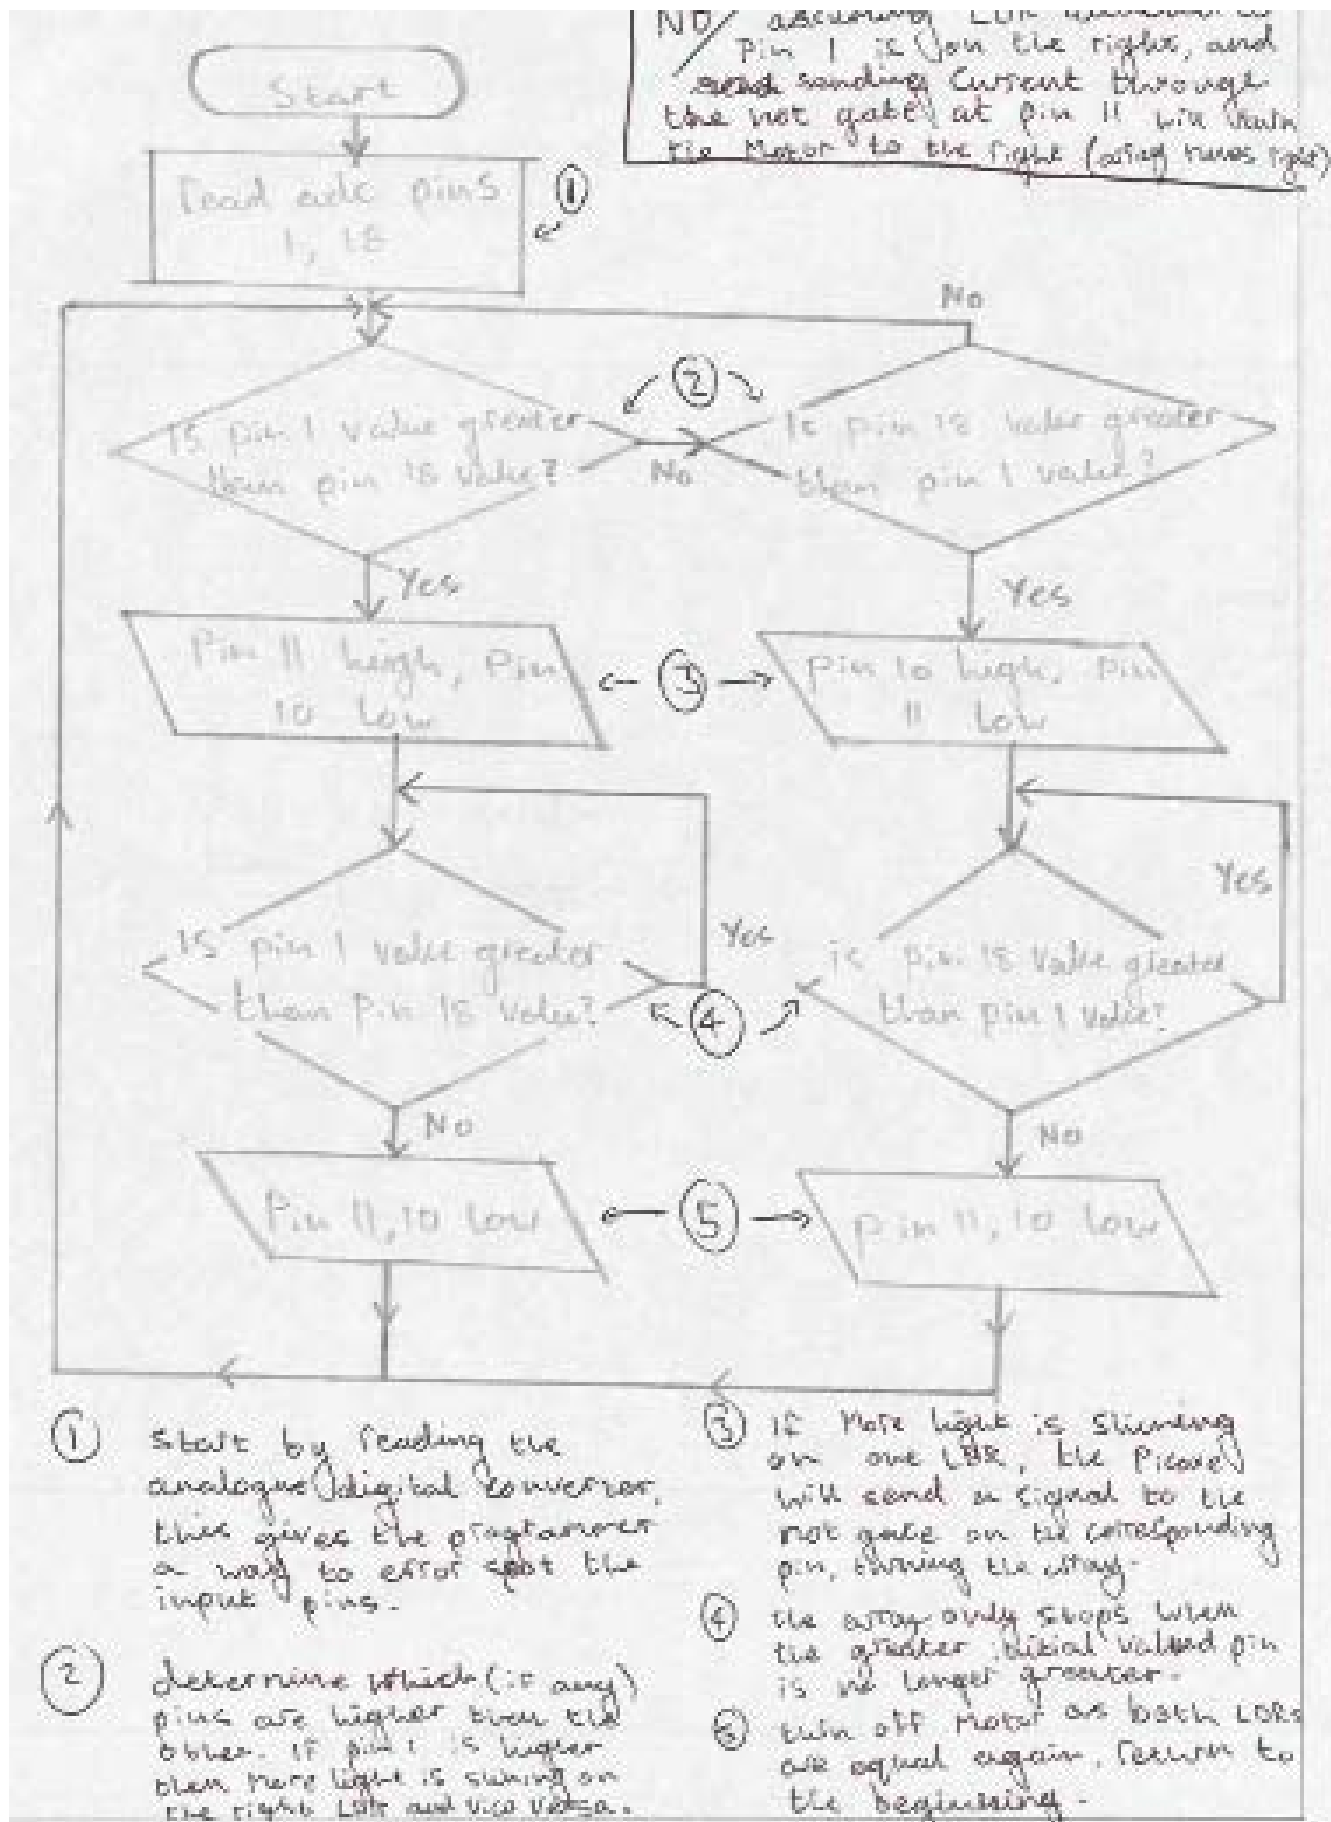 NB/ assuming LDR
Pin 1 is on the right, and
sending current through
the not gate at pin 11 will turn
the Motor to the right (array turns right)
Start
read adc pins
1, 18
①
No
②
Is pin 1 value greater
than pin 18 value?
No
Is pin 18 value greater
than pin 1 value?
Yes
Yes
Pin 11 high, Pin
10 low
③
pin 10 high, Pin
11 low
Yes
Is pin 1 value greater
than Pin 18 value?
Yes
④
is pin 18 value greater
than pin 1 value?
No
No
Pin 11, 10 low
⑤
pin 11, 10 low
① Start by reading the
analogue/digital convertor,
this gives the programmer
a way to error spot the
input pins.
② determine which (if any)
pins are higher than the
other. If pin 1 is higher
then more light is shining on
the right LDR and vice versa.
③ If More light is shining
on one LDR, the Picaxe
will send a signal to the
not gate on the corresponding
pin, turning the array.
④ the array only stops when
the greater initial valued pin
is no longer greater.
⑤ turn off Motor as both LDRs
are equal again, return to
the beginning.